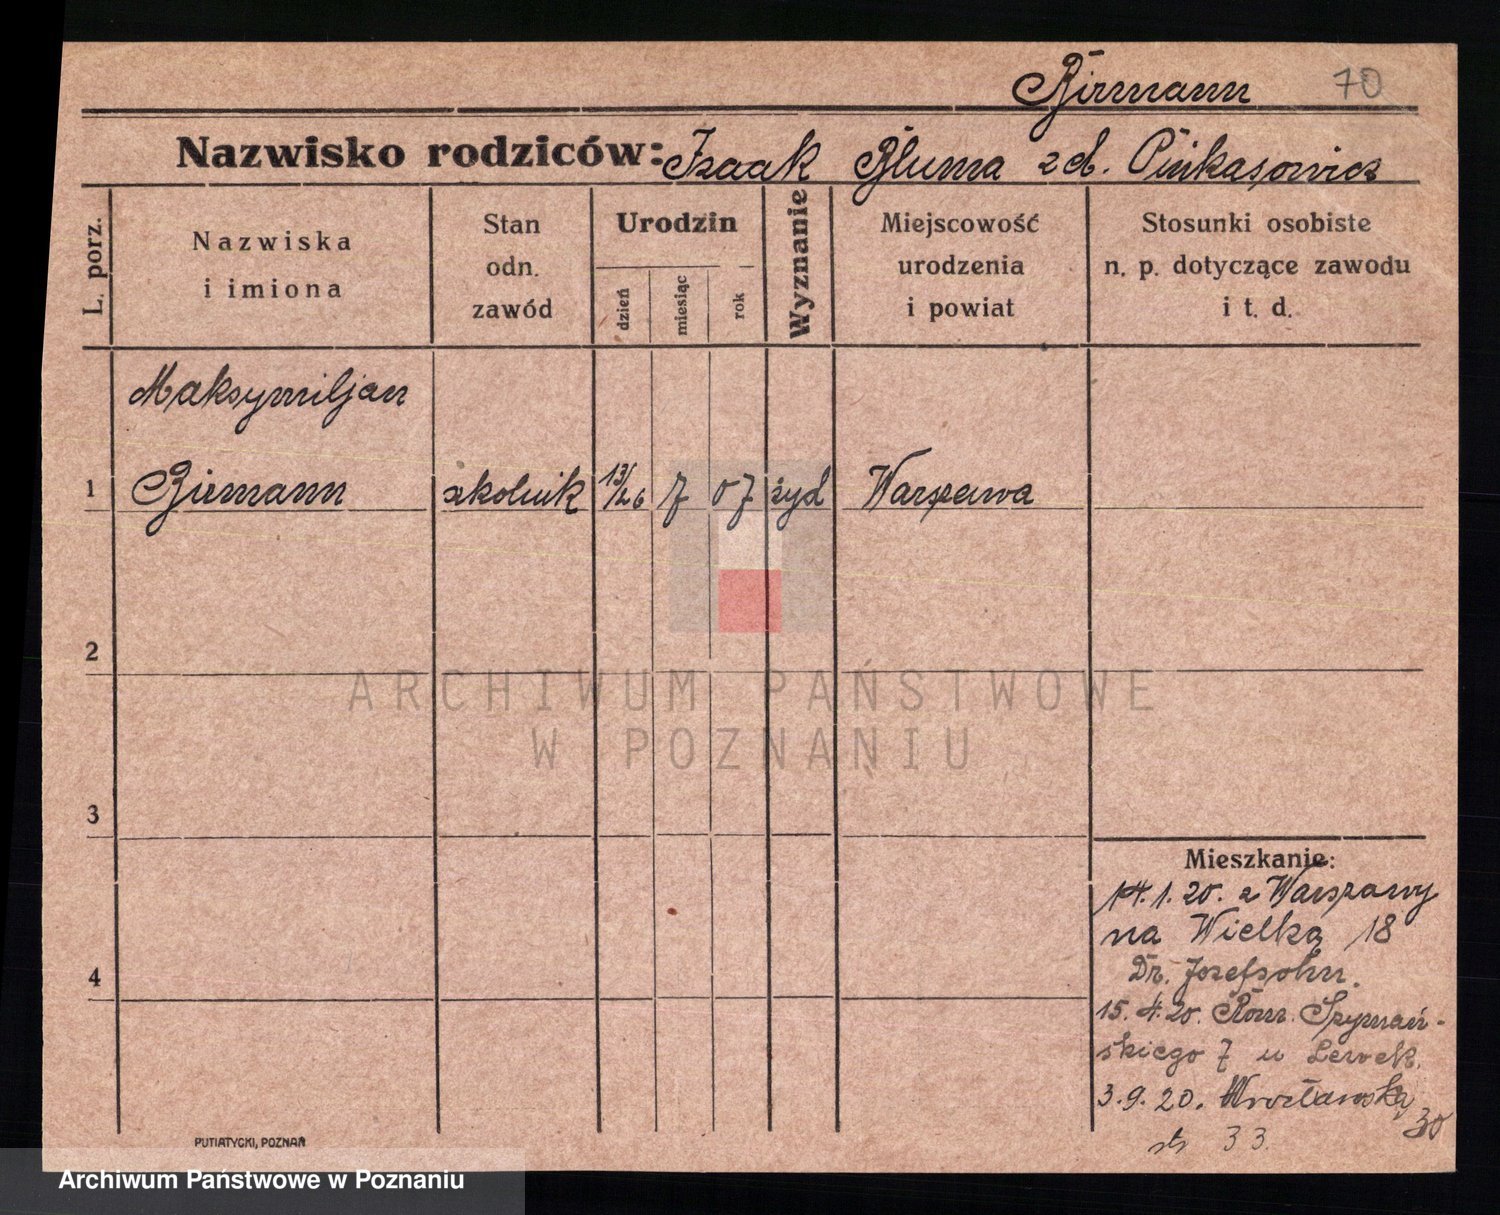 Birmann 70
Nazwisko rodziców: Izaak Bluma z d. Pinkasowicz
L. porz.
Nazwiska
i imiona
Stan
odn.
zawód
Urodzin
dzień
miesiąc
rok
Wyznanie
Miejscowość
urodzenia
i powiat
Stosunki osobiste
n. p. dotyczące zawodu
i t. d.
Maksymiljan
1 Birmann szkolnik 13/26 7 07 żyd Warszawa
2
3
4
Mieszkanie:
14.1.20. z Warszawy
na Wielką 18
Dr. Josefsohn.
15.4.20. Rom. Szymań-
skiego 7 u Lewek.
3.9.20. Wrocławską
30
33.
PUTIATYCKI, POZNAŃ
ARCHIWUM PAŃSTWOWE
W POZNANIU
Archiwum Państwowe w Poznaniu